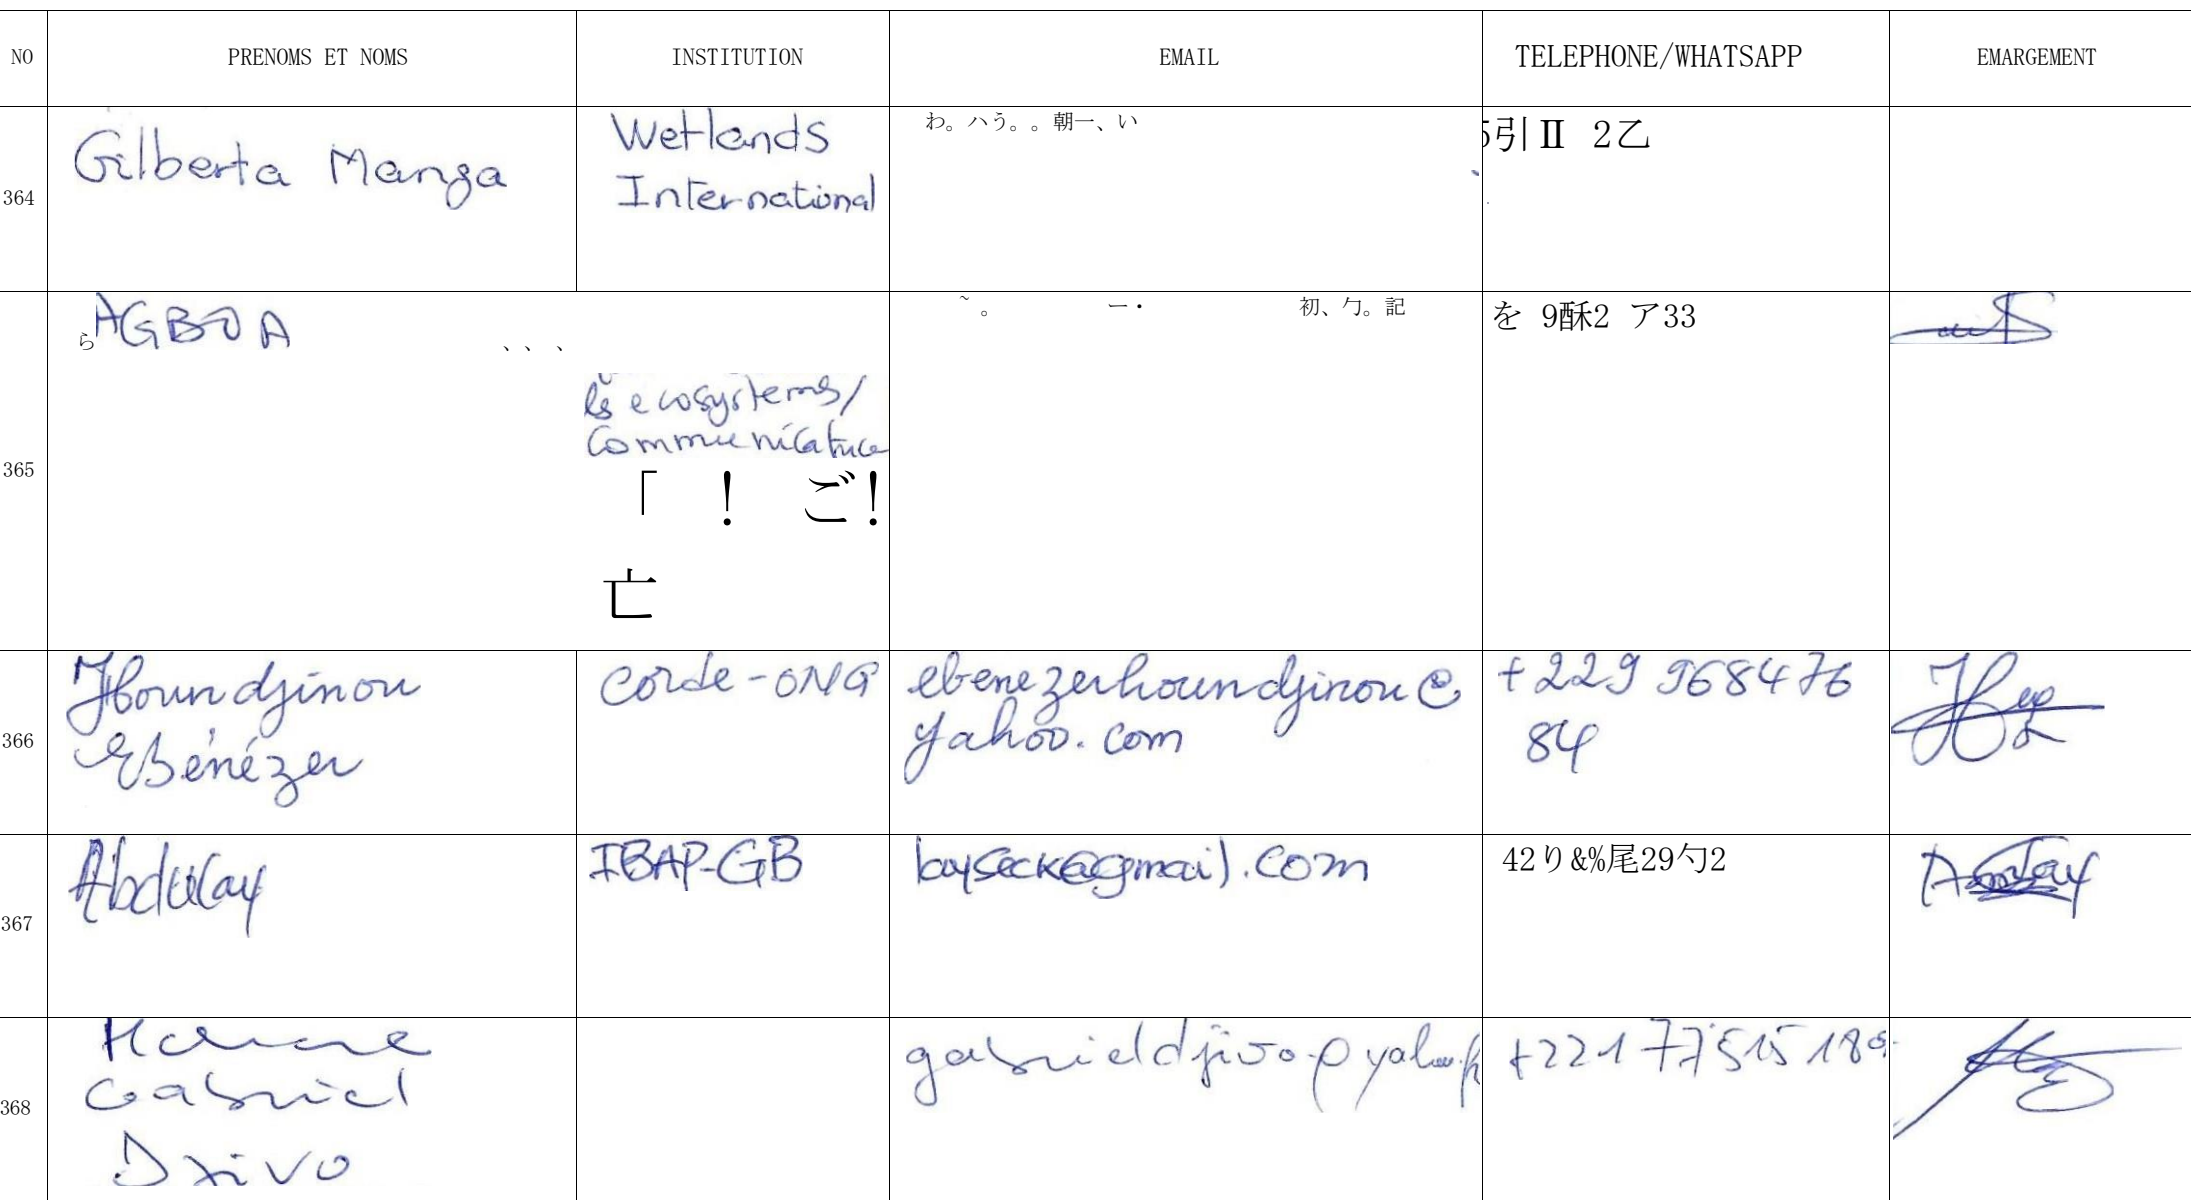 NO PRENOMS ET NOMS INSTITUTION EMAIL TELEPHONE/WHATSAPP EMARGEMENT
364
Gilberta Manga
Wetlands
International
わ。ハう。。朝一、い
5引Ⅱ 2乙
365
ら AGBOA
、、、
ls ecosystems/
Communicatrice
「 ! ご!
亡
~ 。 ー・ 初、勹。記
を 9酥2 ア33
366
Houndjinou
Ebénézer
Corde-ONG
ebenezerhoundjinou@
yahoo.com
+229 968476
84
367
Abdulay
IBAP-GB
layseck@gmail.com
42り&%尾29勺2
368
Gabriel
Djivo
gabrieldjivo@yahoo.fr
+221 77 515 189